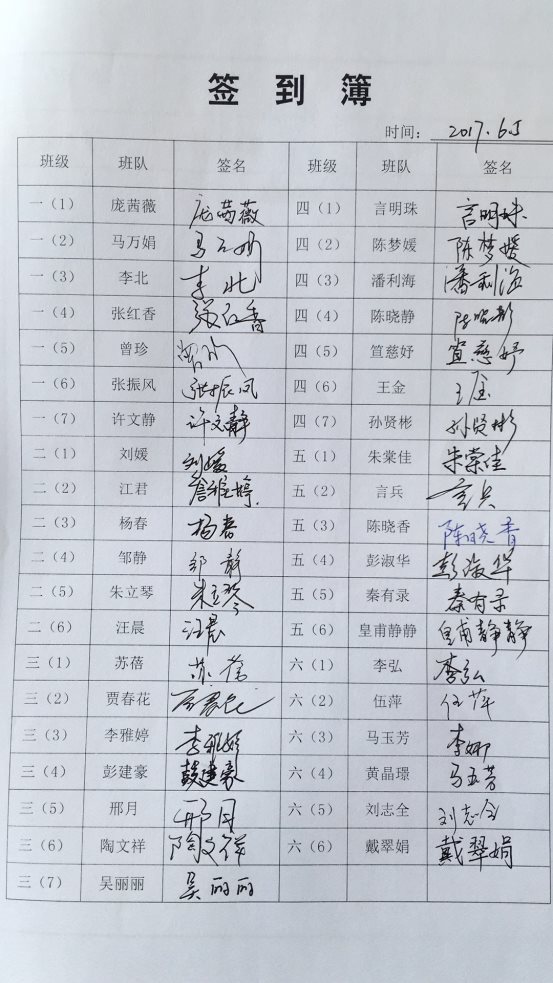 签到簿
时间： 2017.6.5
班级 班队 签名 班级 班队 签名
一（1） 庞茜薇 庞茜薇 四（1） 言明珠 言明珠
一（2） 马万娟 马万娟 四（2） 陈梦媛 陈梦媛
一（3） 李北 李北 四（3） 潘利海 潘利海
一（4） 张红香 张红香 四（4） 陈晓静
一（5） 曾珍 四（5） 笪慈妤 笪慈妤
一（6） 张振风 张振风 四（6） 王金 王金
一（7） 许文静 许文静 四（7） 孙贤彬 孙贤彬
二（1） 刘媛 刘媛 五（1） 朱棠佳 朱棠佳
二（2） 江君 詹雅婷 五（2） 言兵 言兵
二（3） 杨春 杨春 五（3） 陈晓香 陈晓香
二（4） 邹静 邹静 五（4） 彭淑华 彭淑华
二（5） 朱立琴 朱立琴 五（5） 秦有录 秦有录
二（6） 汪晨 汪晨 五（6） 皇甫静静 皇甫静静
三（1） 苏蓓 苏蓓 六（1） 李弘 李弘
三（2） 贾春花 贾春花 六（2） 伍萍 伍萍
三（3） 李雅婷 李雅婷 六（3） 马玉芳 李娜
三（4） 彭建豪 彭建豪 六（4） 黄晶璟 马玉芳
三（5） 邢月 邢月 六（5） 刘志全 刘志全
三（6） 陶文祥 陶文祥 六（6） 戴翠娟 戴翠娟
三（7） 吴丽丽 吴丽丽